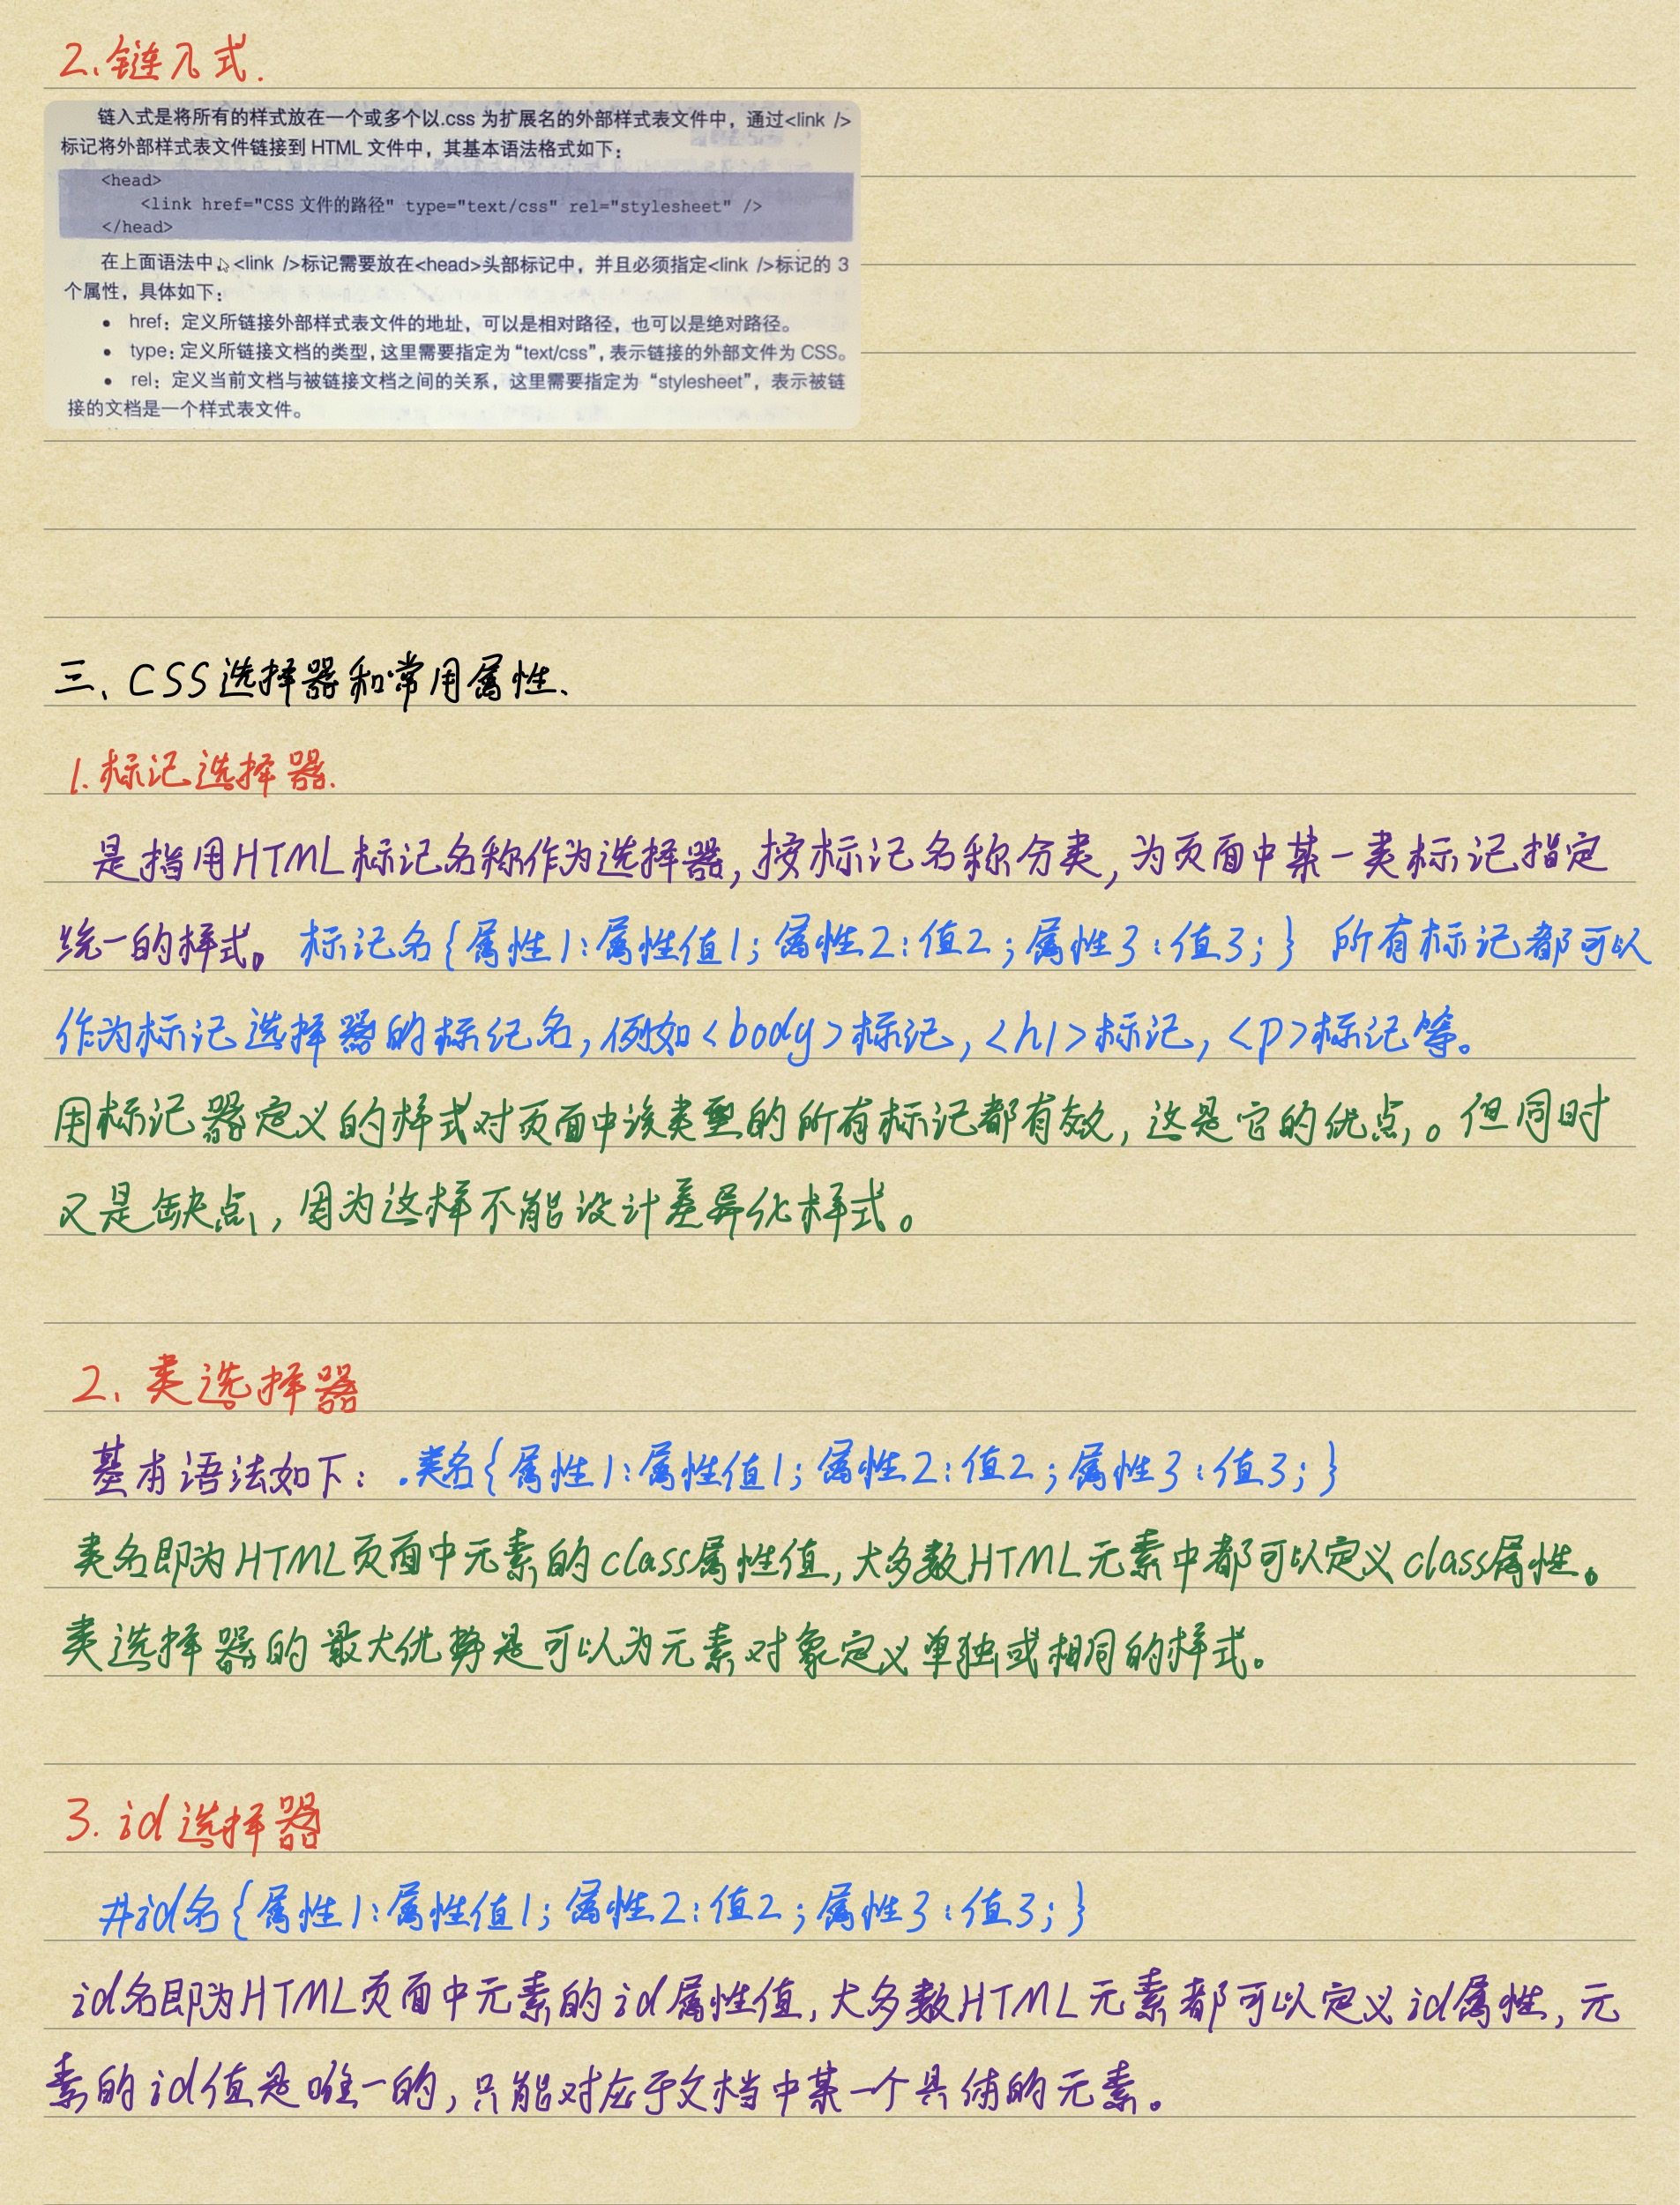 2、链入式.
链入式是将所有的样式放在一个或多个以.css 为扩展名的外部样式表文件中，通过<link />
标记将外部样式表文件链接到 HTML 文件中，其基本语法格式如下：
<head>
<link href="CSS 文件的路径" type="text/css" rel="stylesheet" />
</head>
在上面语法中，<link />标记需要放在<head>头部标记中，并且必须指定<link />标记的 3
个属性，具体如下：
• href：定义所链接外部样式表文件的地址，可以是相对路径，也可以是绝对路径。
• type：定义所链接文档的类型，这里需要指定为“text/css”，表示链接的外部文件为 CSS。
• rel：定义当前文档与被链接文档之间的关系，这里需要指定为“stylesheet”，表示被链
接的文档是一个样式表文件。
三、CSS选择器和常用属性、
1.标记选择器.
是指用HTML标记名称作为选择器,按标记名称分类,为页面中某一类标记指定
统一的样式。标记名{属性1:属性值1;属性2:值2;属性3:值3;} 所有标记都可以
作为标记选择器的标记名,例如<body>标记,<h1>标记,<p>标记等。
用标记器定义的样式对页面中该类型的所有标记都有效,这是它的优点,。但同时
又是缺点,因为这样不能设计差异化样式。
2、类选择器
基本语法如下: .类名{属性1:属性值1;属性2:值2;属性3:值3;}
类名即为HTML页面中元素的class属性值,大多数HTML元素中都可以定义class属性。
类选择器的最大优势是可以为元素对象定义单独或相同的样式。
3.id选择器
#id名{属性1:属性值1;属性2:值2;属性3:值3;}
id名即为HTML页面中元素的id属性值,大多数HTML元素都可以定义id属性,元
素的id值是唯一的,只能对应于文档中某一个具体的元素。